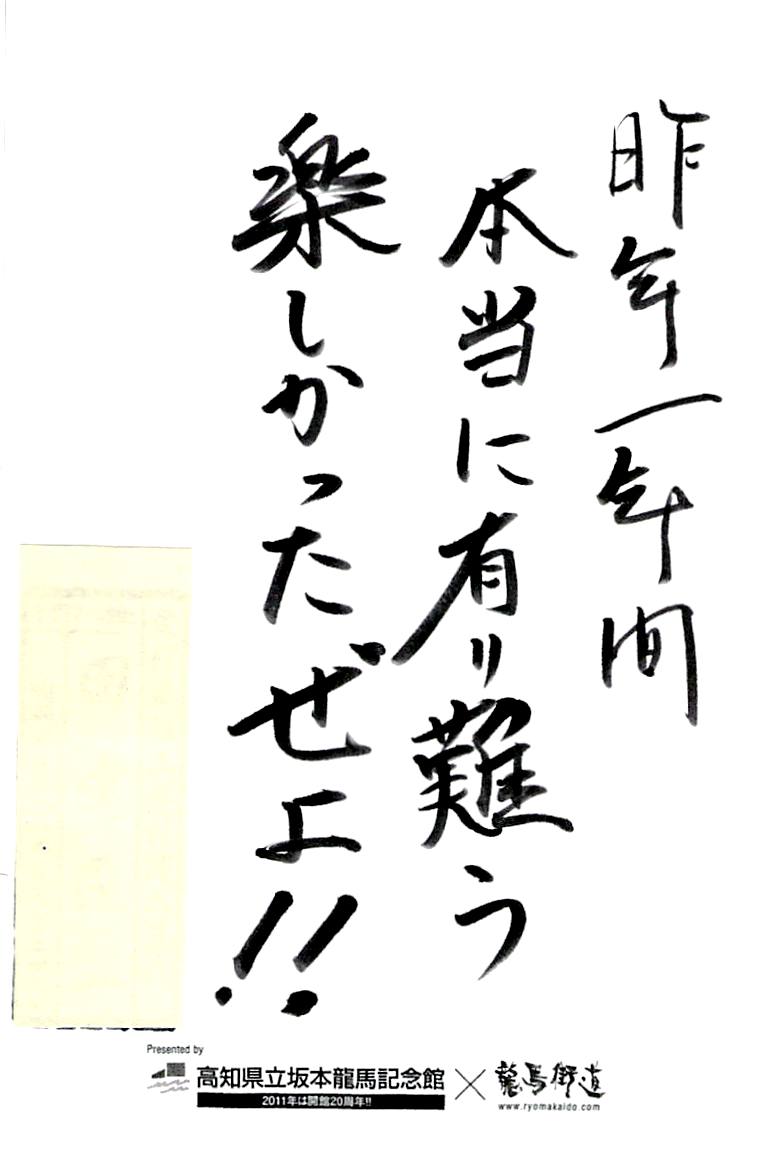 昨年一年間
本当に有り難う
楽しかったぜよ!!
Presented by
高知県立坂本龍馬記念館
2011年は開館20周年!!
×
龍馬街道
www.ryomakaido.com